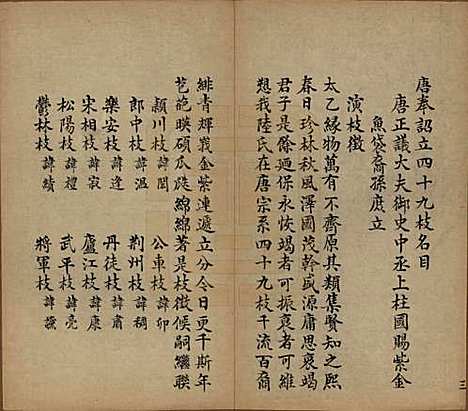 唐奉詔立四十九枝名目
唐正議大夫御史中丞上柱國賜紫金
魚袋裔孫庶立
演枝徵
太乙緣物萬有不齊原其類集賢知之熙
春日珍林秋風澤國茂幹盛源庸思裒竭
君子是保餘廼保永恢竭者可振裒者可維
想我陸氏在唐宗系四十九枝千流百裔
緋青輝義金紫連遞立分今日更千斯年
芑葩暎碩瓜瓞綿綿著是枝徵候嗣繼聯
潁川枝 諱閎 公車枝 諱卯
郎中枝 諱溫 荆州枝 諱稠
樂安枝 諱逢 丹徒枝 諱肅
宋相枝 諱寂 廬江枝 諱康
松陽枝 諱禮 武平枝 諱亮
鬱林枝 諱績 將軍枝 諱
三